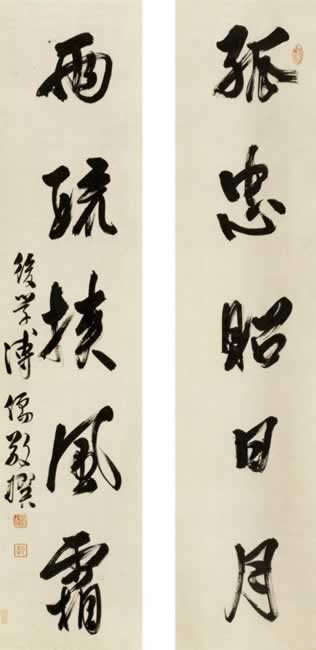 孤忠昭日月
兩疏挾風霜
後學溥儒敬撰